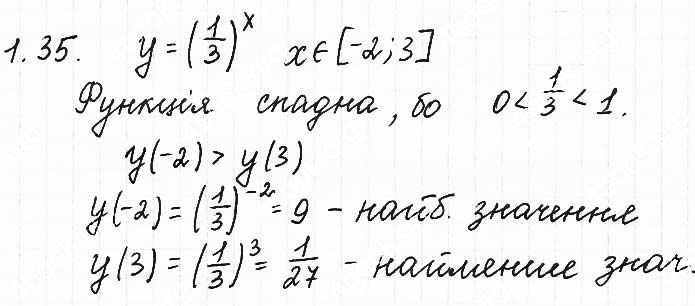 1.35. y = (1/3)^x x ∈ [-2; 3]
Функція спадна, бо 0 < 1/3 < 1.
y(-2) > y(3)
y(-2) = (1/3)^-2 = 9 - найб. значення
y(3) = (1/3)^3 = 1/27 - найменше знач.